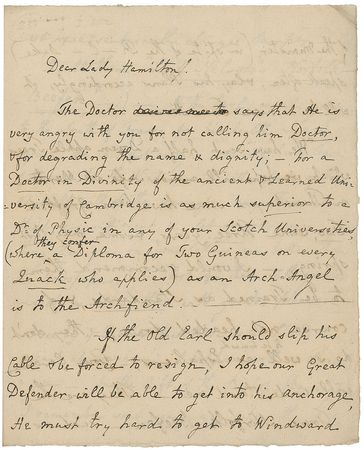 Dear Lady Hamilton!
The Doctor desires me to says that He is
very angry with you for not calling him Doctor,
& for degrading the name & dignity; – For a
Doctor in Divinity of the ancient & Learned Uni-
=versity of Cambridge is as much superior to a
Dr. of Physic in any of your Scotch Universities
(where they confer a Diploma for Two Guineas on every
Quack who applies) as an Arch-Angel
is to the Archfiend.
If the Old Earl should slip his
Cable & be forced to resign, I hope our Great
Defender will be able to get into his anchorage,
He must try hard to get to Windward